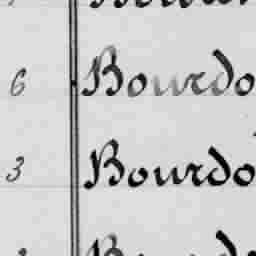 6 Bourdo
3 Bourdo